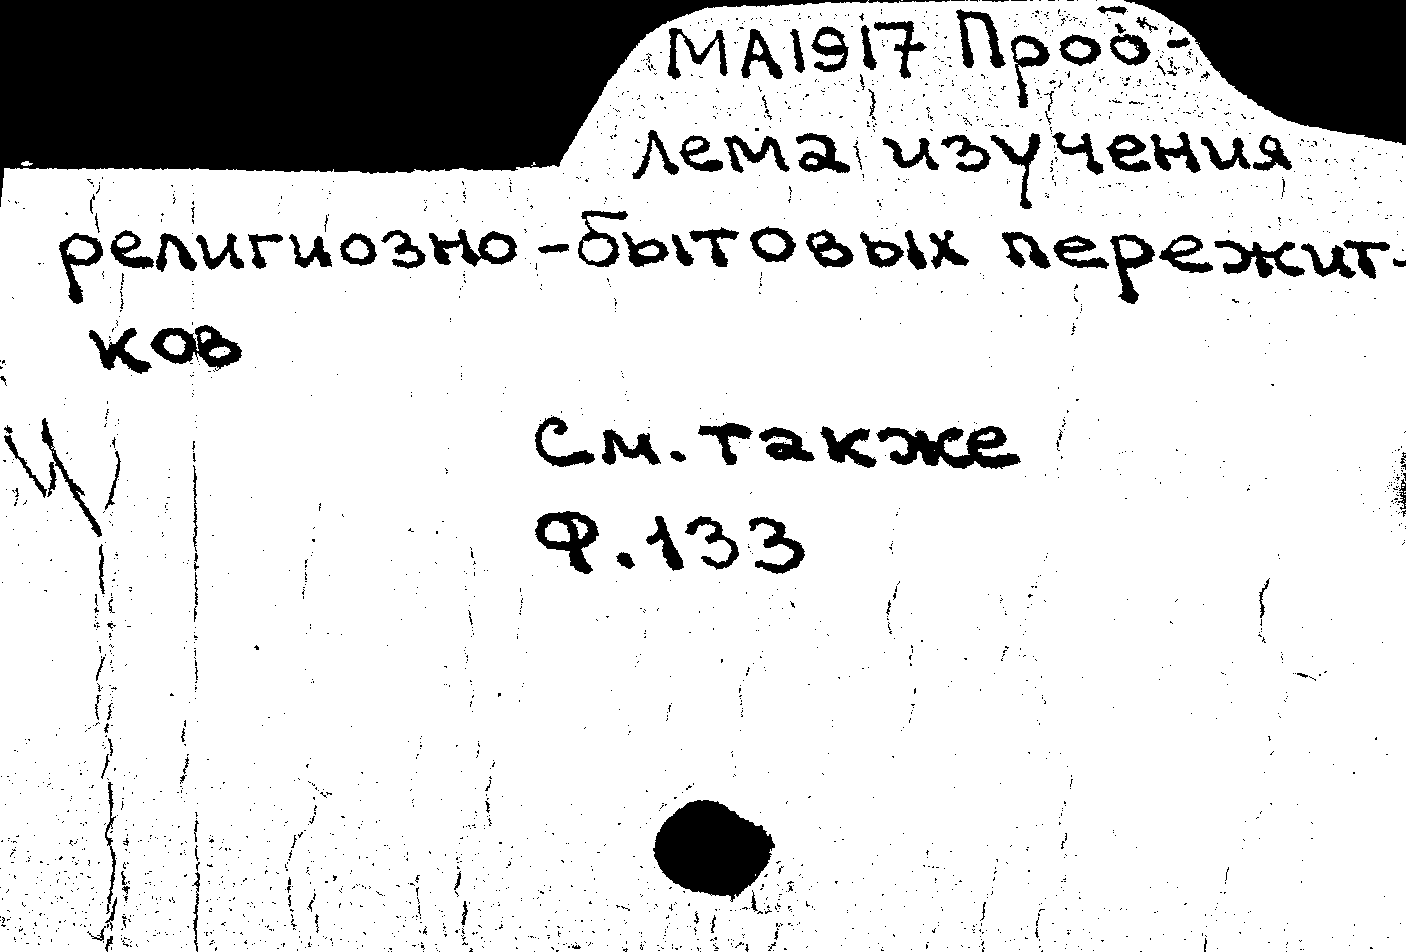 МА1917 Проб-
лема изучения
религиозно-бытовых пережит-
ков
См. также
Ф.133